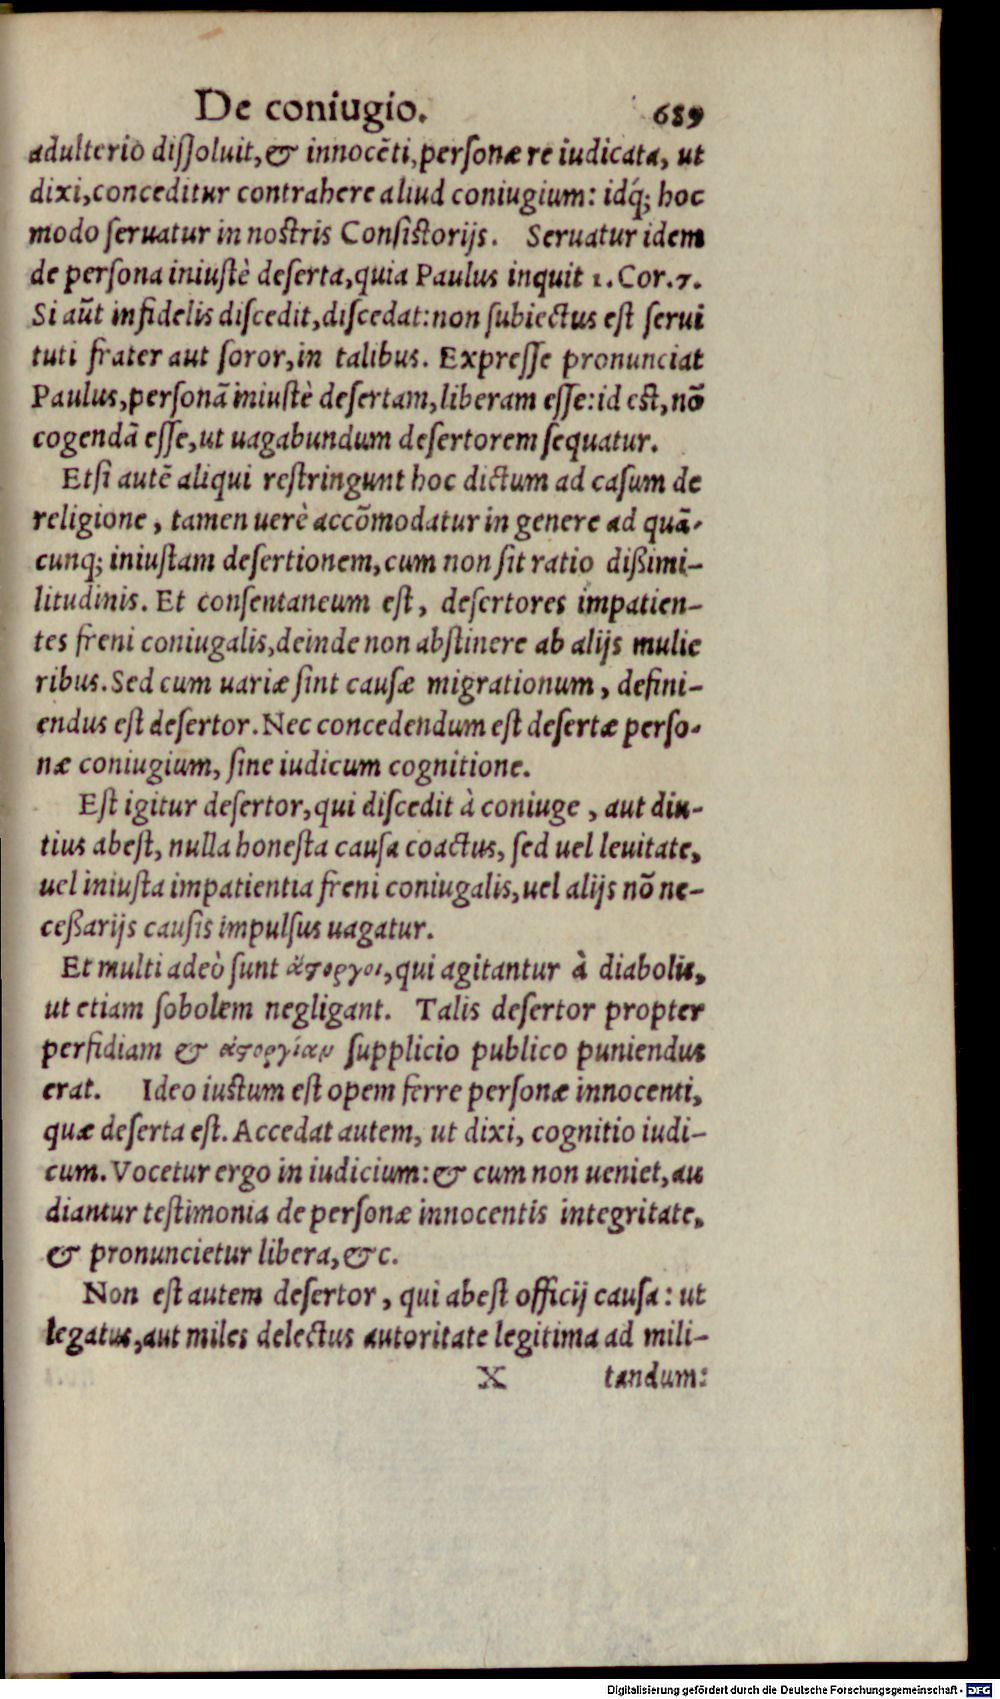 De coniugio. 689
adulterio diſſoluit, & innocẽti, perſonæ re iudicata, ut
dixi, conceditur contrahere aliud coniugium: idq́; hoc
modo ſeruatur in noſtris Conſiſtorijs. Seruatur idem
de perſona iniuſtè deſerta, quia Paulus inquit 1. Cor. 7.
Si aũt infidelis diſcedit, diſcedat: non ſubiectus eſt ſerui
tuti frater aut ſoror, in talibus. Expreſſe pronunciat
Paulus, perſonã iniuſtè deſertam, liberam eſſe: id eſt, nõ
cogendã eſſe, ut uagabundum deſertorem ſequatur.
Etſi autẽ aliqui reſtringunt hoc dictum ad caſum de
religione, tamen uerè accõmodatur in genere ad quã-
cunq; iniuſtam deſertionem, cum non ſit ratio dißimi-
litudinis. Et conſentaneum eſt, deſertores impatien-
tes freni coniugalis, deinde non abſtinere ab alijs mulie
ribus. Sed cum uariæ ſint cauſæ migrationum, defini-
endus eſt deſertor. Nec concedendum eſt deſertæ perſo-
næ coniugium, ſine iudicum cognitione.
Eſt igitur deſertor, qui diſcedit à coniuge, aut diu-
tius abeſt, nulla honeſta cauſa coactus, ſed uel leuitate,
uel iniuſta impatientia freni coniugalis, uel alijs nõ ne-
ceßarijs cauſis impulſus uagatur.
Et multi adeò ſunt ἄϛοργοι, qui agitantur à diabolis,
ut etiam ſobolem negligant. Talis deſertor propter
perfidiam & ἀϛοργίαν ſupplicio publico puniendus
erat. Ideo iuſtum eſt opem ferre perſonæ innocenti,
quæ deſerta eſt. Accedat autem, ut dixi, cognitio iudi-
cum. Vocetur ergo in iudicium: & cum non ueniet, au
diantur teſtimonia de perſonæ innocentis integritate,
& pronuncietur libera, &c.
Non eſt autem deſertor, qui abeſt officij cauſa: ut
legatus, aut miles delectus autoritate legitima ad mili-
X tandum:
Digitalisierung gefördert durch die Deutsche Forschungsgemeinschaft - DFG